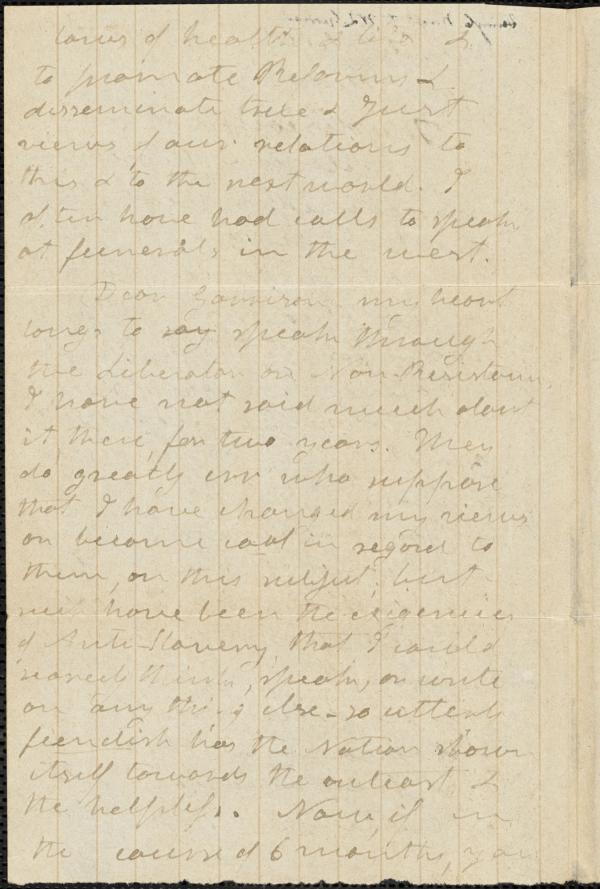 laws of health & life &
to promote Reforms &
disseminate true & just
views of our relations to
this & to the next world. I
often have had calls to speak
at funerals in the west.
Dear Garrison my heart
longs to say speak through
the Liberator on Non-Resistance.
I have not said much about
it there, for two years. They
do greatly err who suppose
that I have changed my views
or become cool in regard to
them, on this subject; but
such have been the exigencies
of Anti-Slavery, that I could
scarcely think, speak, or write
on any thing else - so utterly
fiendish has the Nation shown
itself towards the outcast &
the helpless. Now, if in
the course of 6 months, you